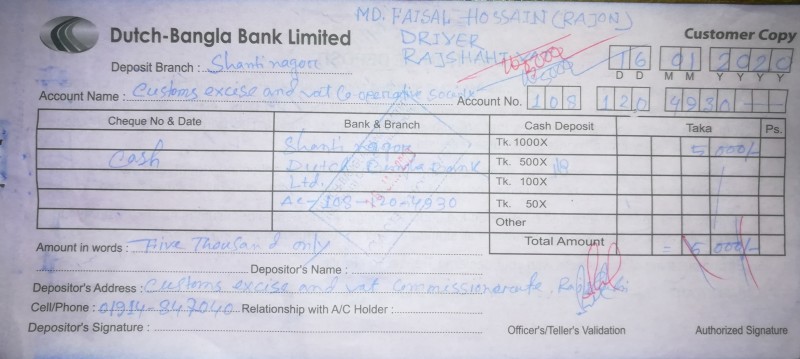 MD. FAISAL HOSSAIN (RAJON)
Dutch-Bangla Bank Limited
DRIVER
Customer Copy
RAJSHAHI
Deposit Branch : Shantinagore
16 01 2020
D D M M Y Y Y Y
Account Name : Customs excise and vat Co-operative
Account No. 108 120 4930
Cheque No & Date Bank & Branch Cash Deposit Taka Ps.
Cash
Shantinagore
Tk. 1000X 5000/-
Dutch Bangla bank
Tk. 500X 10
Ltd.
Tk. 100X
Ac-108-120-4930
Tk. 50X
Other
Amount in words : Five Thousand only
Total Amount = 5000/-
Depositor's Name :
Depositor's Address : Customs excise and vat Commissionerate,
Cell/Phone : 01914-847040 Relationship with A/C Holder :
Depositor's Signature :
Officer's/Teller's Validation
Authorized Signature